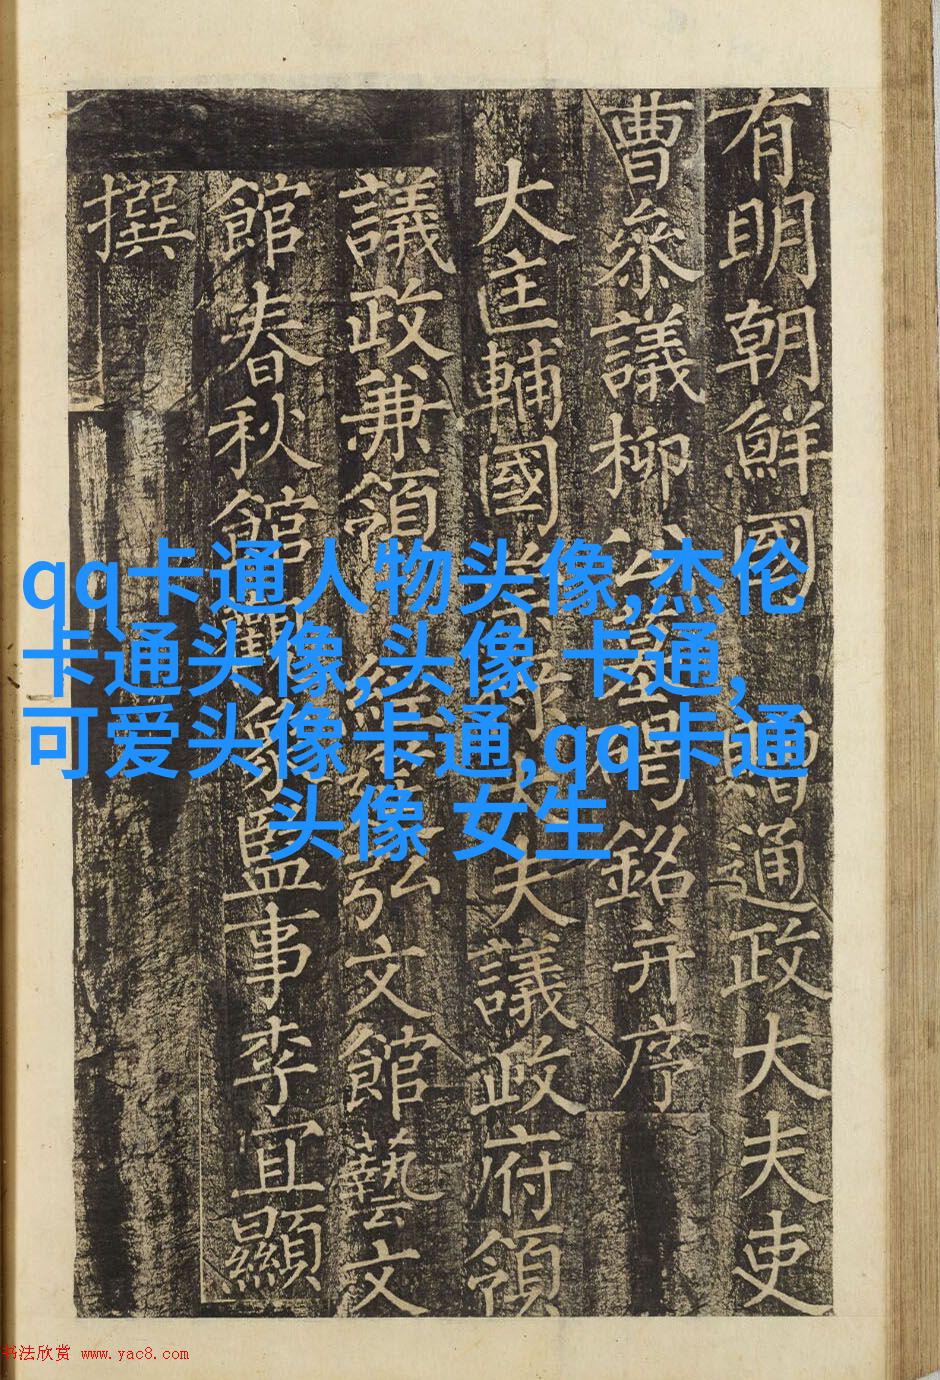 有明朝鮮國贈通政大夫吏
曹叅議柳公墓碣銘并序
大匡輔國崇祿大夫議政府領
議政兼領經筵弘文館藝文
館春秋館觀象監事李宜顯
撰
qq卡通人物头像,杰伦
卡通头像,头像 卡通,
可爱头像卡通,qq卡通
头像 女生
书法欣赏 www.yac8.com